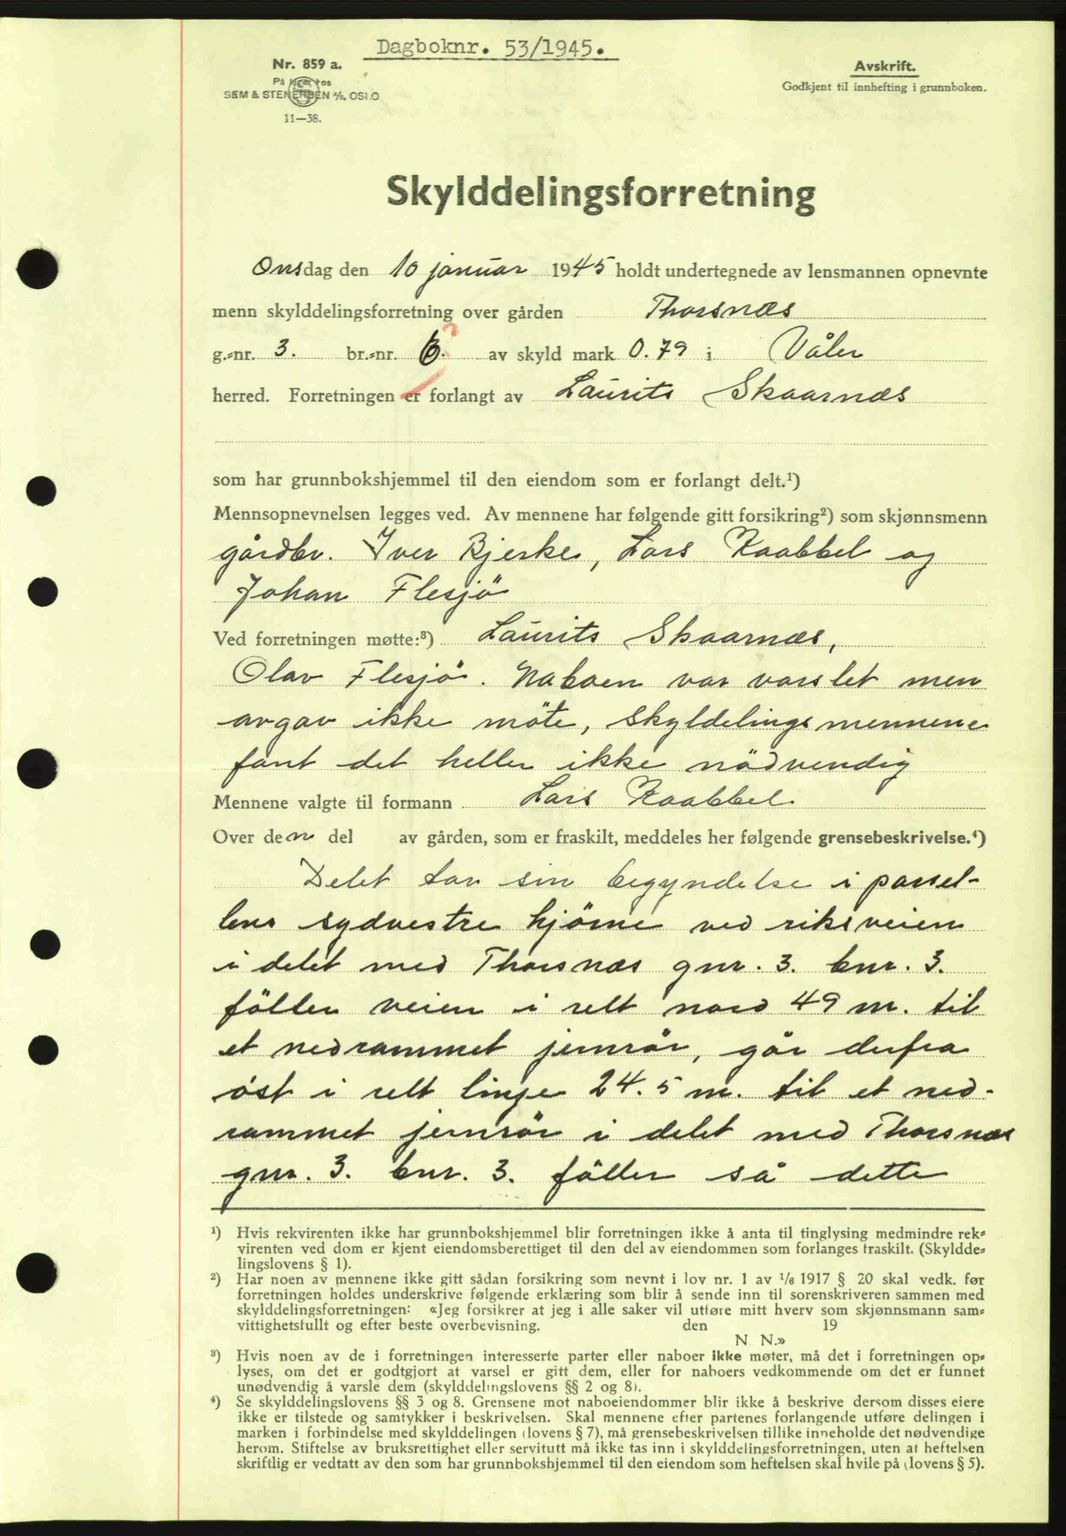 Dagboknr. 53/1945.
Nr. 859 a.
På lager hos
SEM & STENERSEN A/S, OSLO
11—38.
Avskrift.
Godkjent til innhefting i grunnboken.
Skylddelingsforretning
Onsdag den 10 januar 1945 holdt undertegnede av lensmannen opnevnte
menn skylddelingsforretning over gården Thorsnæs
g.-nr. 3. br.-nr. 6. ? av skyld mark 0.79 i Våler
herred. Forretningen er forlangt av Laurits Skaarnæs
som har grunnbokshjemmel til den eiendom som er forlangt delt.¹)
Mennsopnevnelsen legges ved. Av mennene har følgende gitt forsikring²) som skjønnsmenn
gårdbr. Iver Bjerke, Lars Kaabbel og
Johan Flesjö
Ved forretningen møtte:³) Laurits Skaarnæs,
Olav Flesjö. Naboen var varslet men
avgav ikke möte, skyldelingsmennene
fant det heller ikke nödvendig
Mennene valgte til formann Lars Kaabbel.
Over den del av gården, som er fraskilt, meddeles her følgende grensebeskrivelse.⁴)
Delet tar sin begyndelse i parsel-
lens sydvestre hjörne ved riksveien
i delet med Thorsnæs gnr. 3. bnr. 3.
föller veien i rett nord 49 m. til
et nedrammet jernrör, går derfra
öst i rett linje 24.5 m. til et ned-
rammet jernrör i delet med Thorsnæs
gnr. 3. bnr. 3. föller så dette
¹) Hvis rekvirenten ikke har grunnbokshjemmel blir forretningen ikke å anta til tinglysing medmindre rek-
virenten ved dom er kjent eiendomsberettiget til den del av eiendommen som forlanges fraskilt. (Skyldde-
lingslovens § 1).
²) Har noen av mennene ikke gitt sådan forsikring som nevnt i lov nr. 1 av 1/6 1917 § 20 skal vedk. før
forretningen holdes underskrive følgende erklæring som blir å sende inn til sorenskriveren sammen med
skylddelingsforretningen: «Jeg forsikrer at jeg i alle saker vil utføre mitt hverv som skjønnsmann sam-
vittighetsfullt og efter beste overbevisning. den 19
N. N.»
³) Hvis noen av de i forretningen interesserte parter eller naboer ikke møter, må det i forretningen op-
lyses, om det er godtgjort at varsel er gitt dem, eller for naboers vedkommende om det er funnet
unødvendig å varsle dem (skylddelingslovens §§ 2 og 8).
⁴) Se skylddelingslovens §§ 3 og 8. Grensene mot naboeiendommer blir ikke å beskrive dersom disses eiere
ikke er tilstede og samtykker i beskrivelsen. Skal mennene efter partenes forlangende utføre delingen i
marken i forbindelse med skylddelingen (lovens § 7), må grensebeskrivelsen tillike inneholde det nødvendige
herom. Stiftelse av bruksrettighet eller servitutt må ikke tas inn i skylddelingsforretningen, uten at heftelsen
skriftlig er vedtatt av den som har grunnbokshjemmel til den eiendom som heftelsen skal hvile på (lovens § 5).